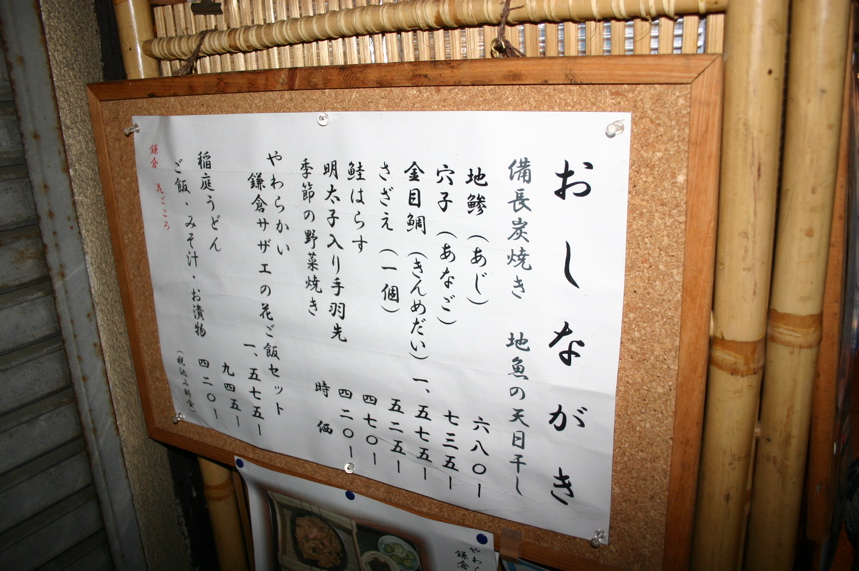 おしながき
備長炭焼き 地魚の天日干し
地鯵(あじ) 六八〇ー
穴子(あなご) 七三五ー
金目鯛(きんめだい) 一、五七五ー
さざえ(一個) 五二五ー
鮭はらす 四七〇ー
明太子入り手羽先 四二〇ー
季節の野菜焼き 時価
やわらかい
鎌倉サザエの花ご飯セット 一、五七五ー
稲庭うどん 九四五ー
ご飯・みそ汁・お漬物 四二〇ー
(税込み料金)
鎌倉 花ごころ
やわら
鎌倉